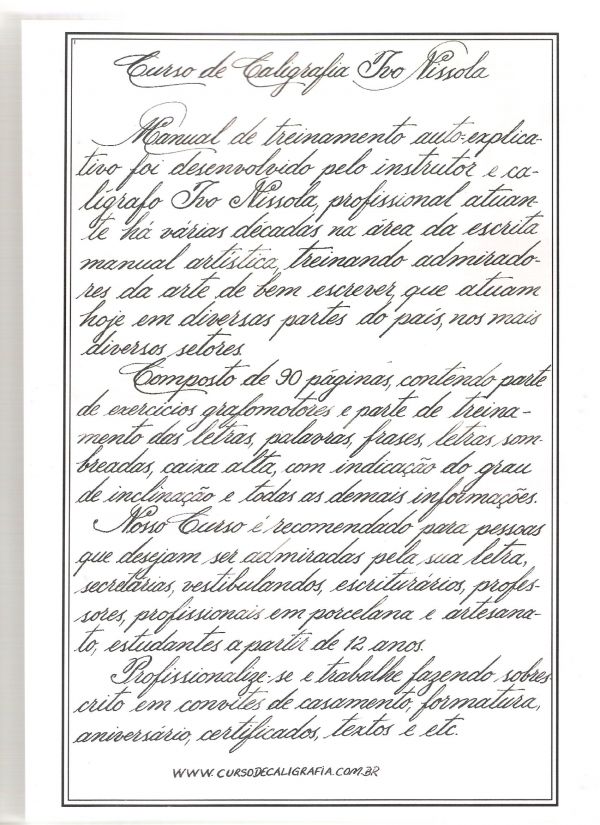 Curso de Caligrafia Ivo Nissola
Manual de treinamento auto-explica-
tivo foi desenvolvido pelo instrutor e ca-
lígrafo Ivo Nissola, profissional atuan-
te há várias décadas na área da escrita
manual artística, treinando admirado-
res da arte de bem escrever, que atuam
hoje em diversas partes do país, nos mais
diversos setores.
Composto de 90 páginas, contendo parte
de exercícios grafomotores e parte de treina-
mento das letras, palavras, frases, letras som-
breadas, caixa alta, com indicação do grau
de inclinação e todas as demais informações.
Nosso Curso é recomendado para pessoas
que desejam ser admiradas pela sua letra,
secretárias, vestibulandos, escriturários, profes-
sores, profissionais em porcelana e artesana-
to, estudantes a partir de 12 anos.
Profissionalize-se e trabalhe fazendo sobres
crito em convites de casamento, formatura,
aniversário, certificados, textos e etc.
WWW.CURSODECALIGRAFIA.COM.BR